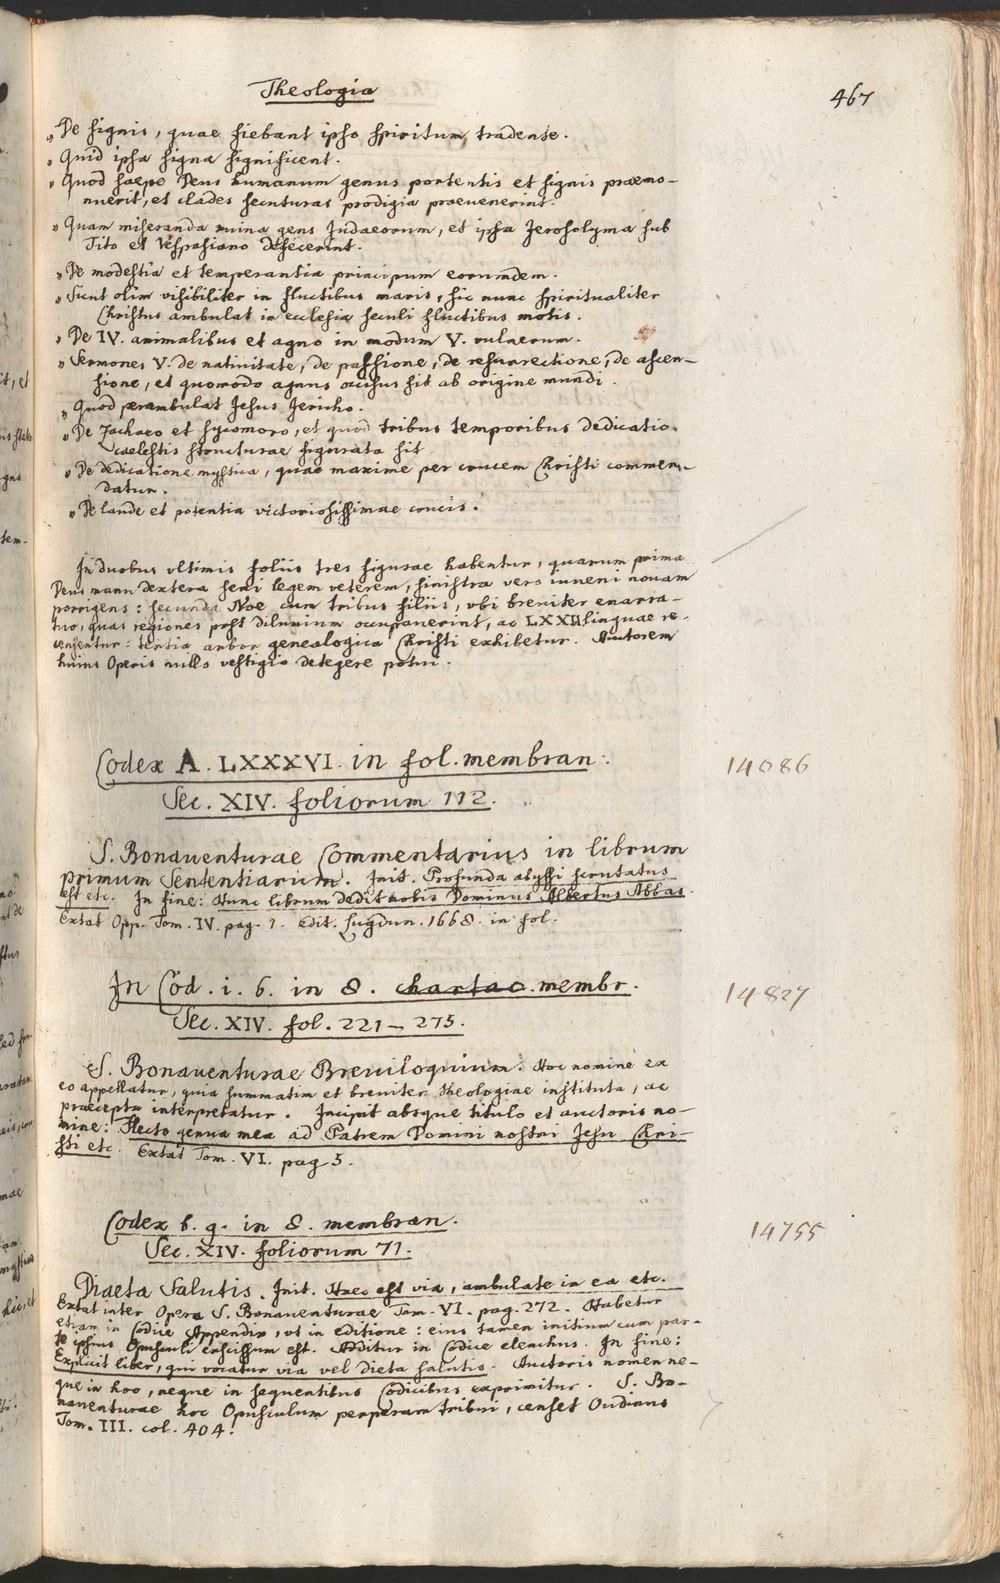 Theologia
467
„ De signis, quae fiebant ipso spiritum tradente.
„ Quid ipsa signa significent.
„ Quod saepe Deus humanum genus portentis et signis praemo-
nuerit, et clades secuturas prodigia praevenerint.
„ Quam miseranda ruina gens Judaeorum, et ipsa Jerosolyma sub
Tito et Vespasiano defecerint.
„ De modestia et temperantia principum eorumdem.
„ Sicut olim visibiliter in fluctibus maris, sic nunc spiritualiter
Christus ambulat in ecclesia seculi fluctibus motis.
„ De IV. animalibus et agno in modum V. vulnerum.
„ Sermones V. de nativitate, de passione, de resurrectione, de ascen-
sione, et quomodo agnus occisus sit ab origine mundi.
„ Quod perambulat Jesus Jericho.
„ De Zachaeo et sycomoro, et quod tribus temporibus dedicatio
caelestis structurae figurata sit.
„ De dedicatione mystica, quae maxime per crucem Christi commen-
datur.
„ De laude et potentia victoriosissimae crucis.
In duobus ultimis foliis tres figurae habentur, quarum prima
Deus manu dextera seni legem veterem, sinistra vero iuveni novam
porrigens: secunda Noe cum tribus filiis, ubi breviter enarra-
tur, quas regiones post diluvium occupaverint, ac LXXII linguae re-
censentur: tertia arbor genealogica Christi exhibetur. Auctorem
huius Operis nullo vestigio detegere potui.
Codex A. LXXXVI. in fol. membran:
14086
Sec. XIV. foliorum 112.
S. Bonaventurae Commentarius in librum
primum Sententiarum. Init. Profunda abyssi scrutatus
est etc. In fine: Hunc librum dedit nobis Dominus Albertus Abbas.
Extat Opp. Tom. IV. pag. 1. edit. Lugdun. 1668. in fol.
In Cod. i. 6. in 8. chartac. membr.
14827
Sec. XIV. fol. 221–275.
S. Bonaventurae Breviloquium. Hoc nomine ex
eo appellatur, quia summatim et breviter theologiae instituta, ac
praecepta interpretatur. Incipit absque titulo et auctoris no-
mine: Flecto genua mea ad Patrem Domini nostri Jesu Chri-
sti etc. Extat Tom. VI. pag 5.
Codex b. g. in 8. membran.
14755
Sec. XIV. foliorum 71.
Diaeta Salutis. Init. Haec est via, ambulate in ea etc.
Extat inter Opera S. Bonaventurae Tom. VI. pag. 272. Habetur
etiam in Codice Appendix, ut in editione: eius tamen initium cum par-
te ipsius Opusculi excissum est. Additur in Codice elenchus. In fine:
Explicit liber, qui vocatur via vel dieta salutis. Auctoris nomen ne-
que in hoc, neque in sequentibus Codicibus exprimitur. S. Bo-
naventurae hoc Opusculum perperam tribui, censet Oudinus
Tom. III. col. 404.